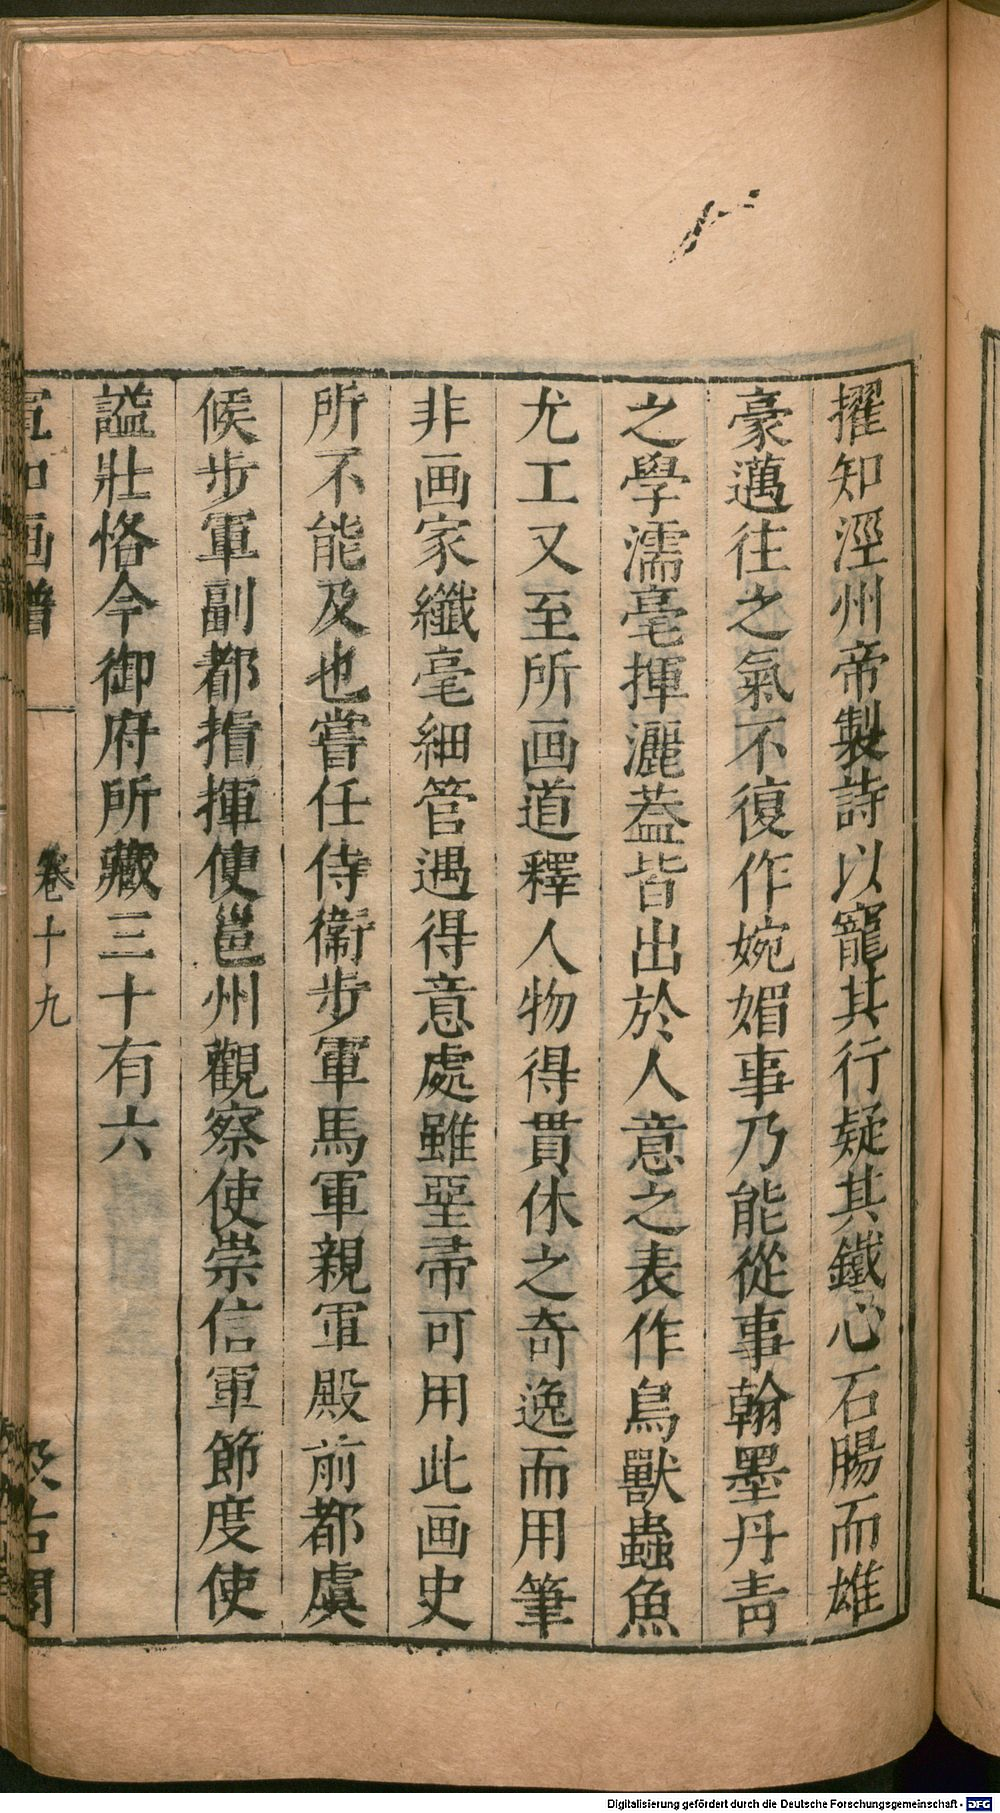 擢知涇州帝製詩以寵其行疑其鐵心石腸而雄
豪邁往之氣不復作婉媚事乃能從事翰墨丹青
之學濡毫揮灑葢皆出於人意之表作鳥獸蟲魚
尤工又至所画道釋人物得貫休之奇逸而用筆
非画家纖毫細管遇得意處雖堊帚可用此画史
所不能及也嘗任侍衛步軍馬軍親軍殿前都虞
候步軍副都揹揮使邕州觀察使崇信軍節度使
諡壯恪今御府所藏三十有六
宣和画譜 卷十九 汲古閣
Digitalisierung gefördert durch die Deutsche Forschungsgemeinschaft - DFG